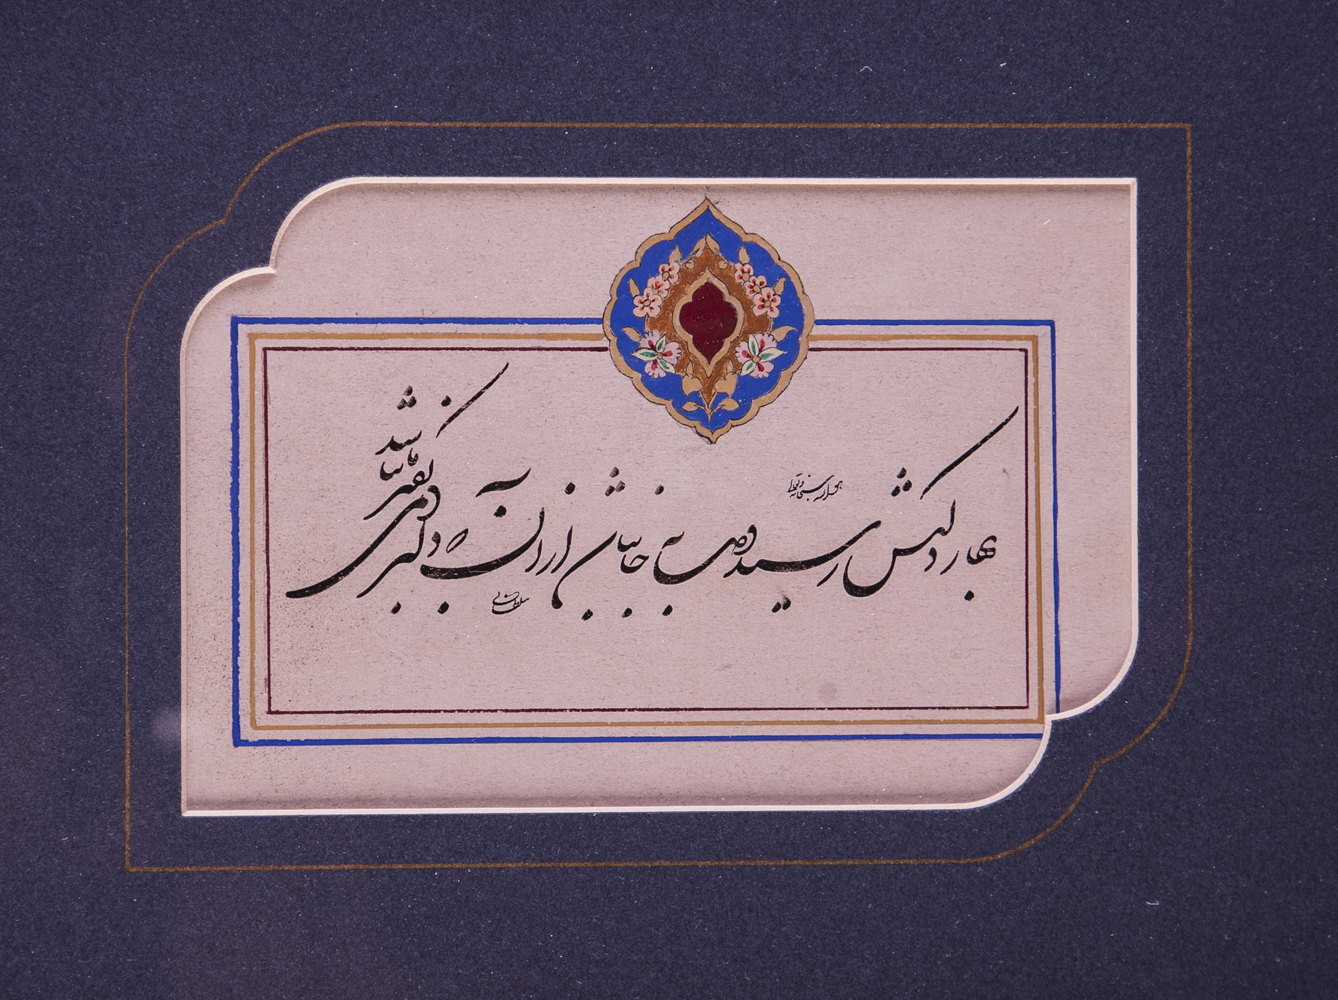 بهار دلکش رسید و دل به جا نباشد از آنکه دلبر دمی به فکر ما نباشد